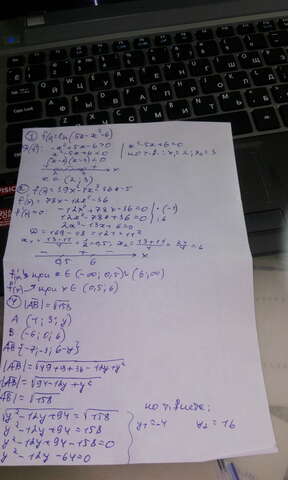 ① f(x)=ln(5x-x²-6)
-x²+5x-6>0
x²-5x+6<0
x²-5x+6=0
x₁=2; x₂=3
(x-2)(x-3)<0
x∈(2;3)
f'(x)=78x-12x²-36
f'(x)=0 -12x²+78x-36=0 |·(-1)
12x²-78x+36=0 |:6
2x²-13x+6=0
D=169-48=121=11²
x₁=13-11/4=2/4=0,5 x₂=13+11/4=24/4=6
- + - x
0,5 6
f(x)↘ при x∈(-∞;0,5)∪(6;∞)
f(x)↗ при x∈(0,5;6)
|AB|=√158
A (1;3;y)
B (-6;0;6)
AB{-7;-3;6-y}
|AB|=√49+9+36-12y+y²
|AB|=√94-12y+y²
|AB|=√158
√y²-12y+94=√158
y²-12y+94=158
y²-12y+94-158=0
y²-12y-64=0
по т. Виета:
y₁=-4 y₂=16